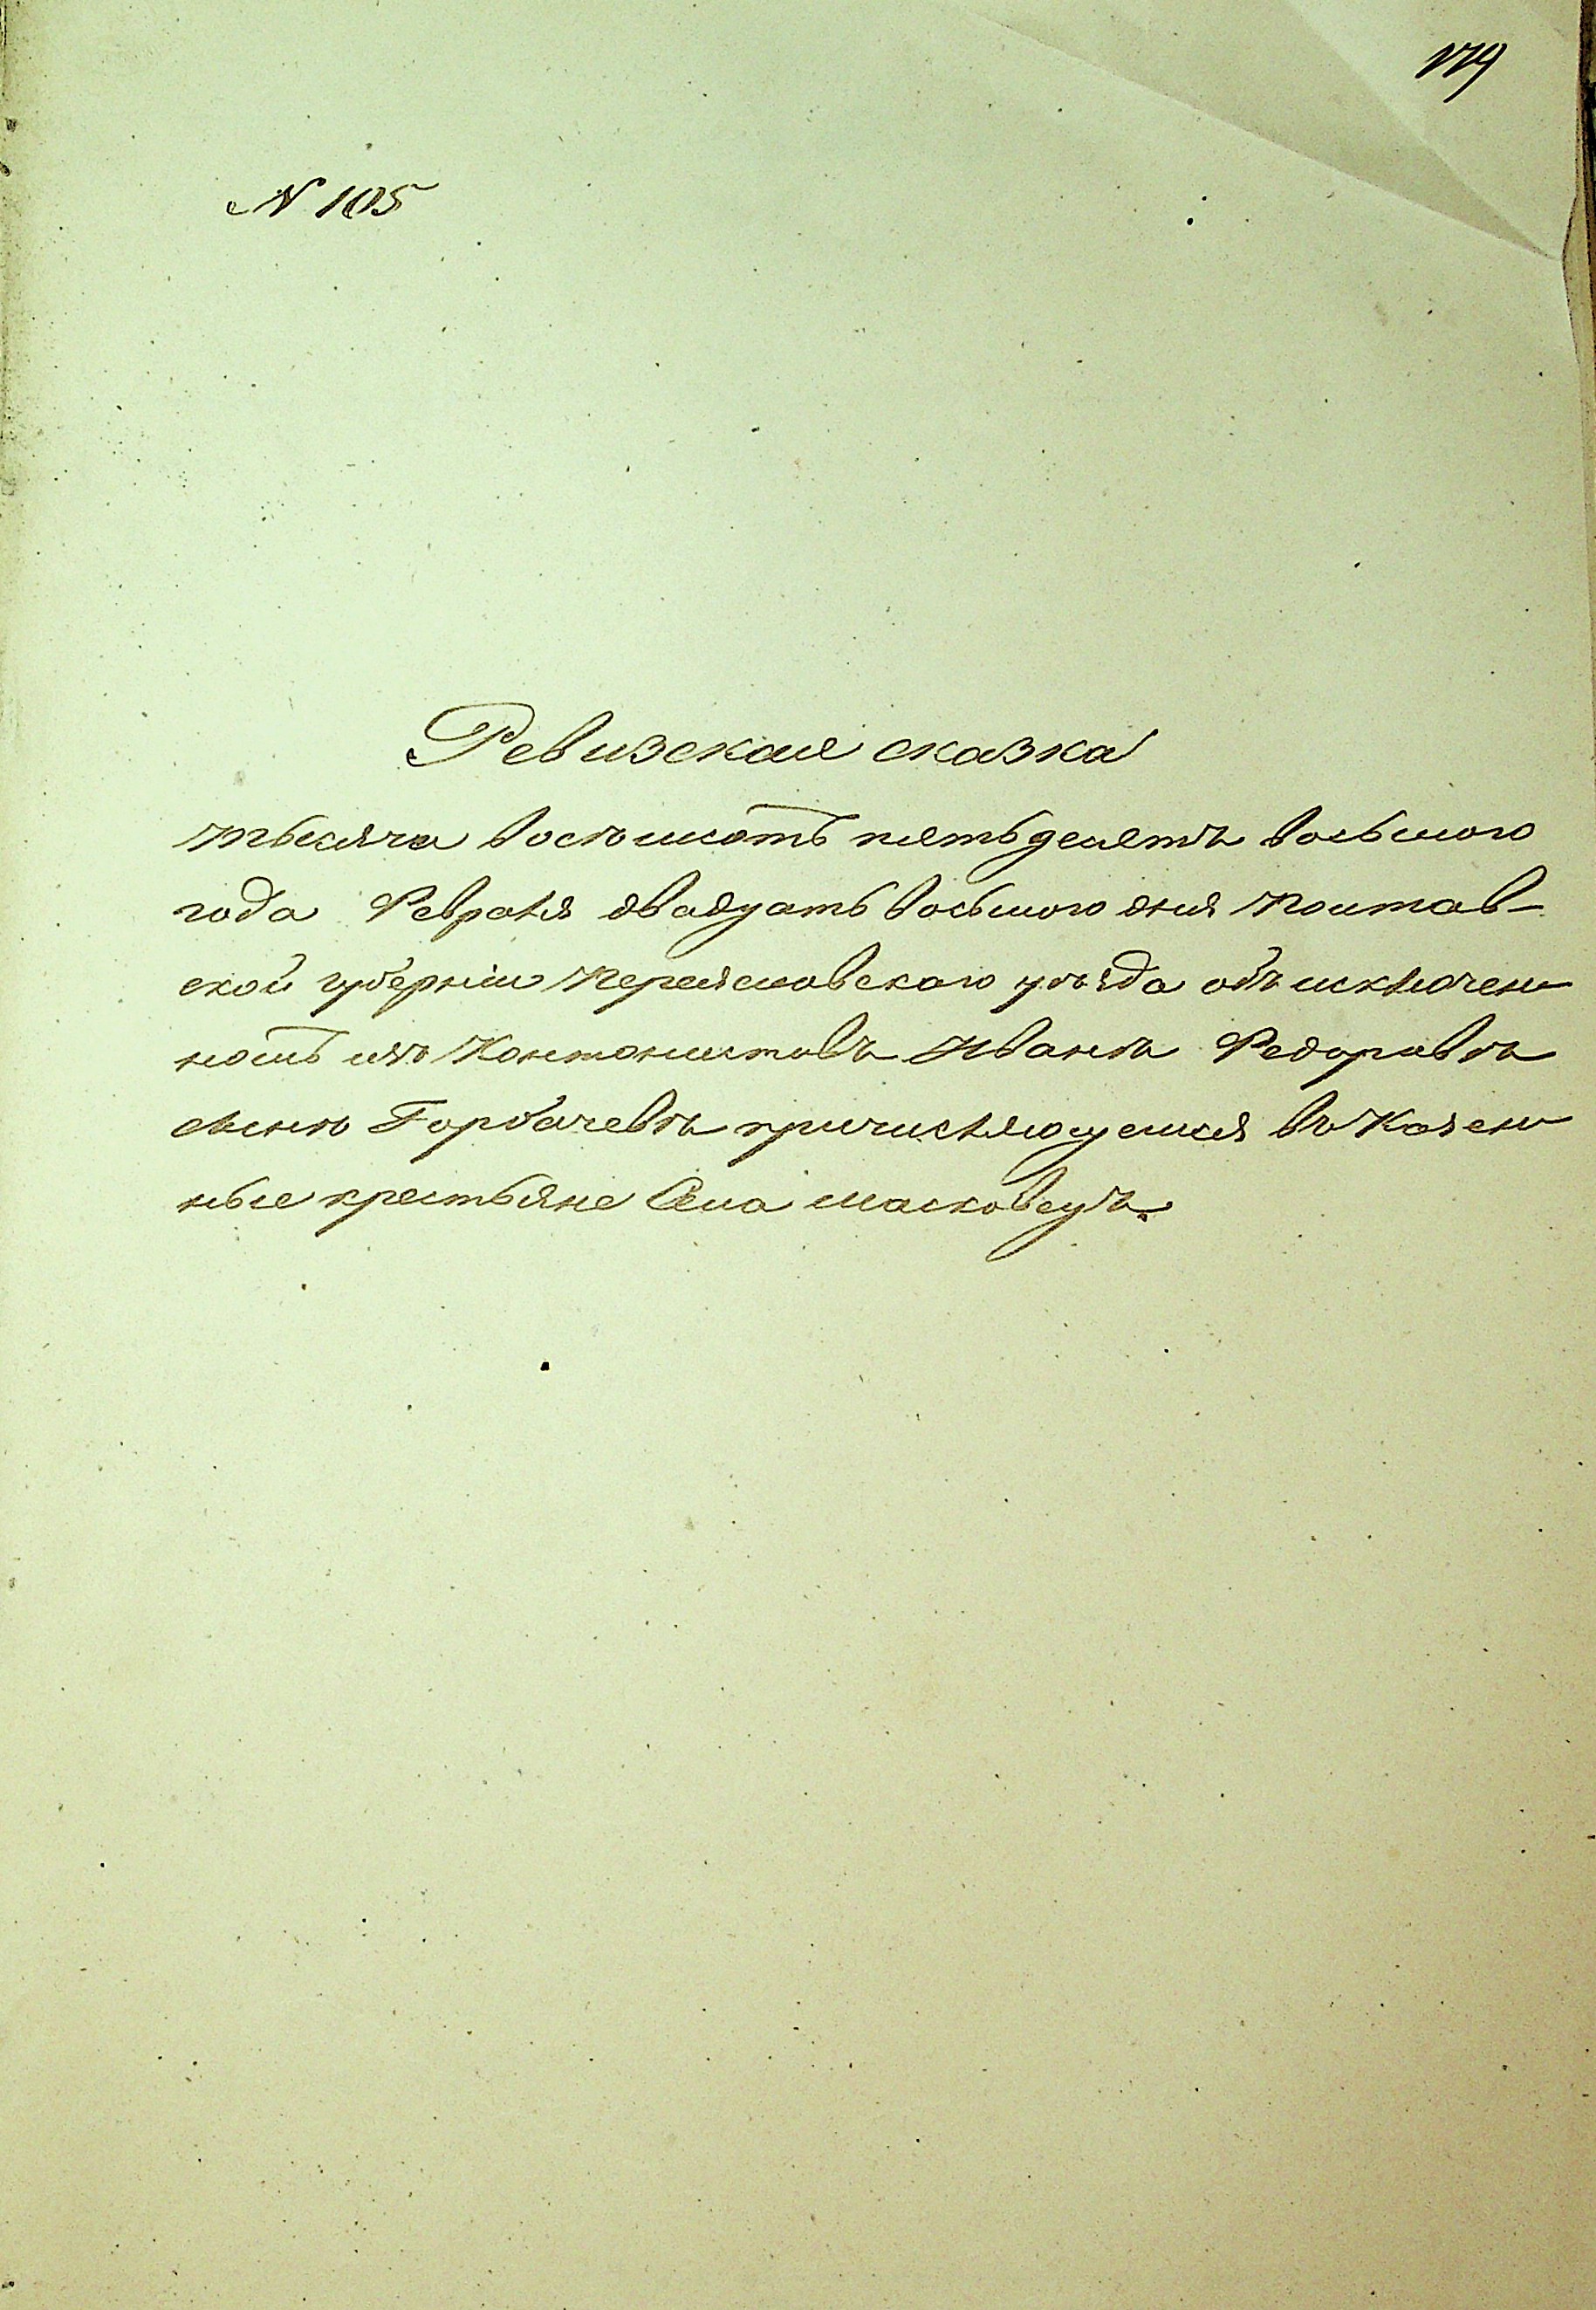 179
№ 105
Ревизская сказка
тысяча восемьсотъ пятьдесятъ восьмого
года Февраля двадцать восьмого дня Полтав-
ской губерніи Переяславскаго уѣзда объ исключен
номъ изъ Кантонистовъ Иванѣ Федоровѣ
сынѣ Горбачевѣ причисляющемся въ Казен
ные крестьяне Села Масковецъ.